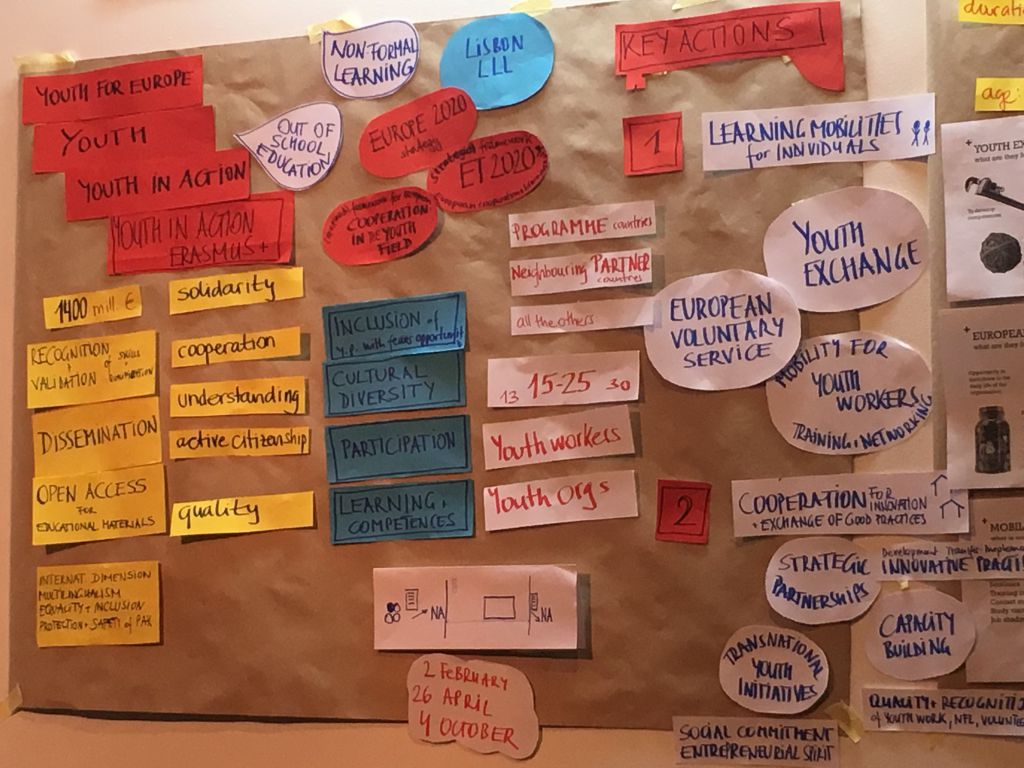 YOUTH FOR EUROPE
YOUTH
YOUTH IN ACTION
YOUTH IN ACTION
ERASMUS +
NON-FORMAL
LEARNING
LISBON
LLL
OUT OF
SCHOOL
EDUCATION
EUROPE 2020
strategy
strategic framework
ET 2020
European cooperation
COOPERATION
IN THE YOUTH
FIELD
1400 mill. €
RECOGNITION
+
VALIDATION of skills
DISSEMINATION
OPEN ACCESS
FOR
EDUCATIONAL MATERIALS
INTERNAT. DIMENSION
MULTILINGUALISM
EQUALITY + INCLUSION
PROTECTION + SAFETY of PAX
solidarity
cooperation
understanding
active citizenship
quality
INCLUSION of
y.p. with fewer opportunit
CULTURAL
DIVERSITY
PARTICIPATION
LEARNING +
COMPETENCES
PROGRAMME countries
Neighbouring PARTNER
countries
all the others
13 15-25 30
Youth workers
Youth Orgs
NA
NA
2 FEBRUARY
26 APRIL
4 OCTOBER
KEY ACTIONS
1
LEARNING MOBILITIES
for INDIVIDUALS
YOUTH
EXCHANGE
EUROPEAN
VOLUNTARY
SERVICE
MOBILITY FOR
YOUTH
WORKERS
TRAINING + NETWORKING
2
COOPERATION FOR
INNOVATION
+ EXCHANGE OF GOOD PRACTICES
STRATEGIC
PARTNERSHIPS
Development Transfer
INNOVATIVE PRACTI
CAPACITY
BUILDING
TRANSNATIONAL
YOUTH
INITIATIVES
SOCIAL COMMITMENT
ENTREPRENEURIAL SPIRIT
QUALITY + RECOGNITIO
of YOUTH WORK, NFL, VOLUNTEE
durati
age:
+ YOUTH EX
what are they f
To develop
competences
+ EUROPEAN
what are they f
+ MOBIL